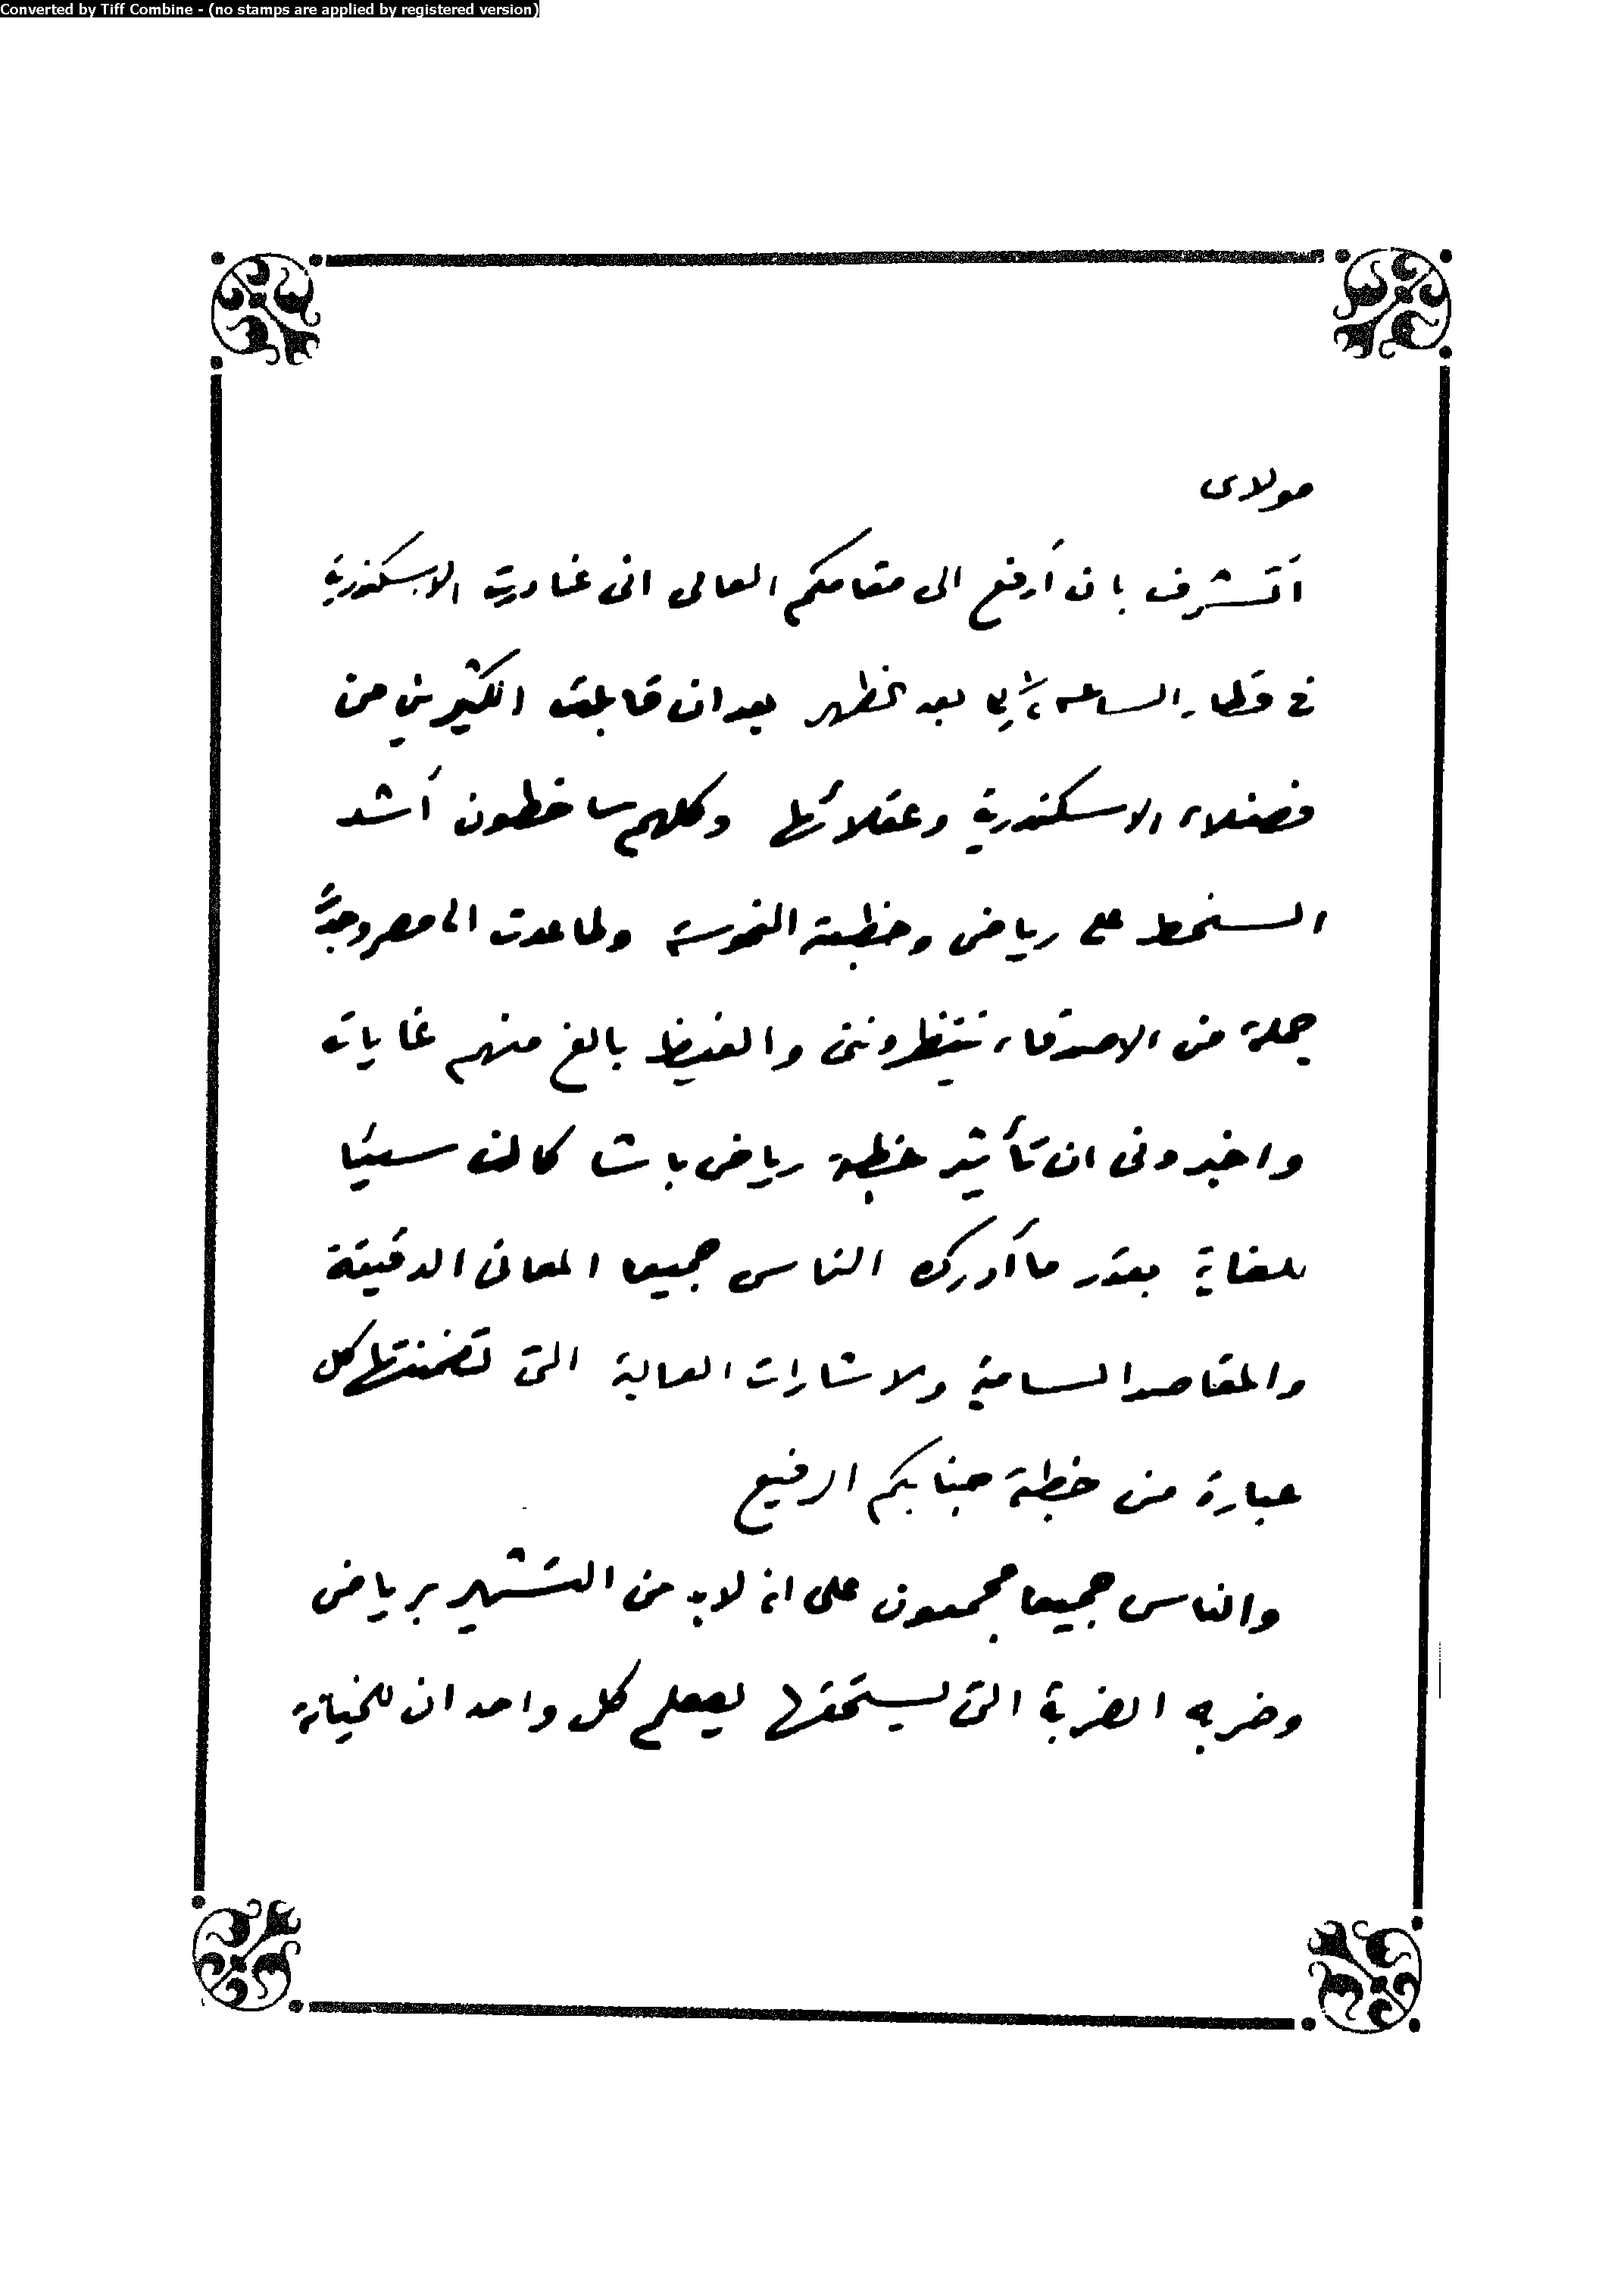 Converted by Tiff Combine - (no stamps are applied by registered version)
مولاى
أتشرف بان أرفع الى مقامكم العالى انى غادرت الاسكندرية
فى قطار الساعة بعد الظهر بعد ان قابلت الكثيرين من
فضلاء الاسكندرية وعقلائها وكلهم ساخطون أشد
السخط على رياض وخطبته ولما عدت الى مصر وجدتُ
جملة من الاصدقاء ينتظروننى والغيظ بالغ منهم غايات
واخبرونى ان تأثير خطبة رياض باشا كانت سيئا
للغاية بقدر ما أدرك الناس جميعا المعانى الدقيقة
والمقاصد السامية والاشارات العالية التى تضمنتها كل
عبارة من خطبة جنابكم الرفيع
والناس جميعا مجمعون على انه لابد من التشهير برياض
وضربه الضربة التى يستحقها ليعلم كل واحد ان للخيانة